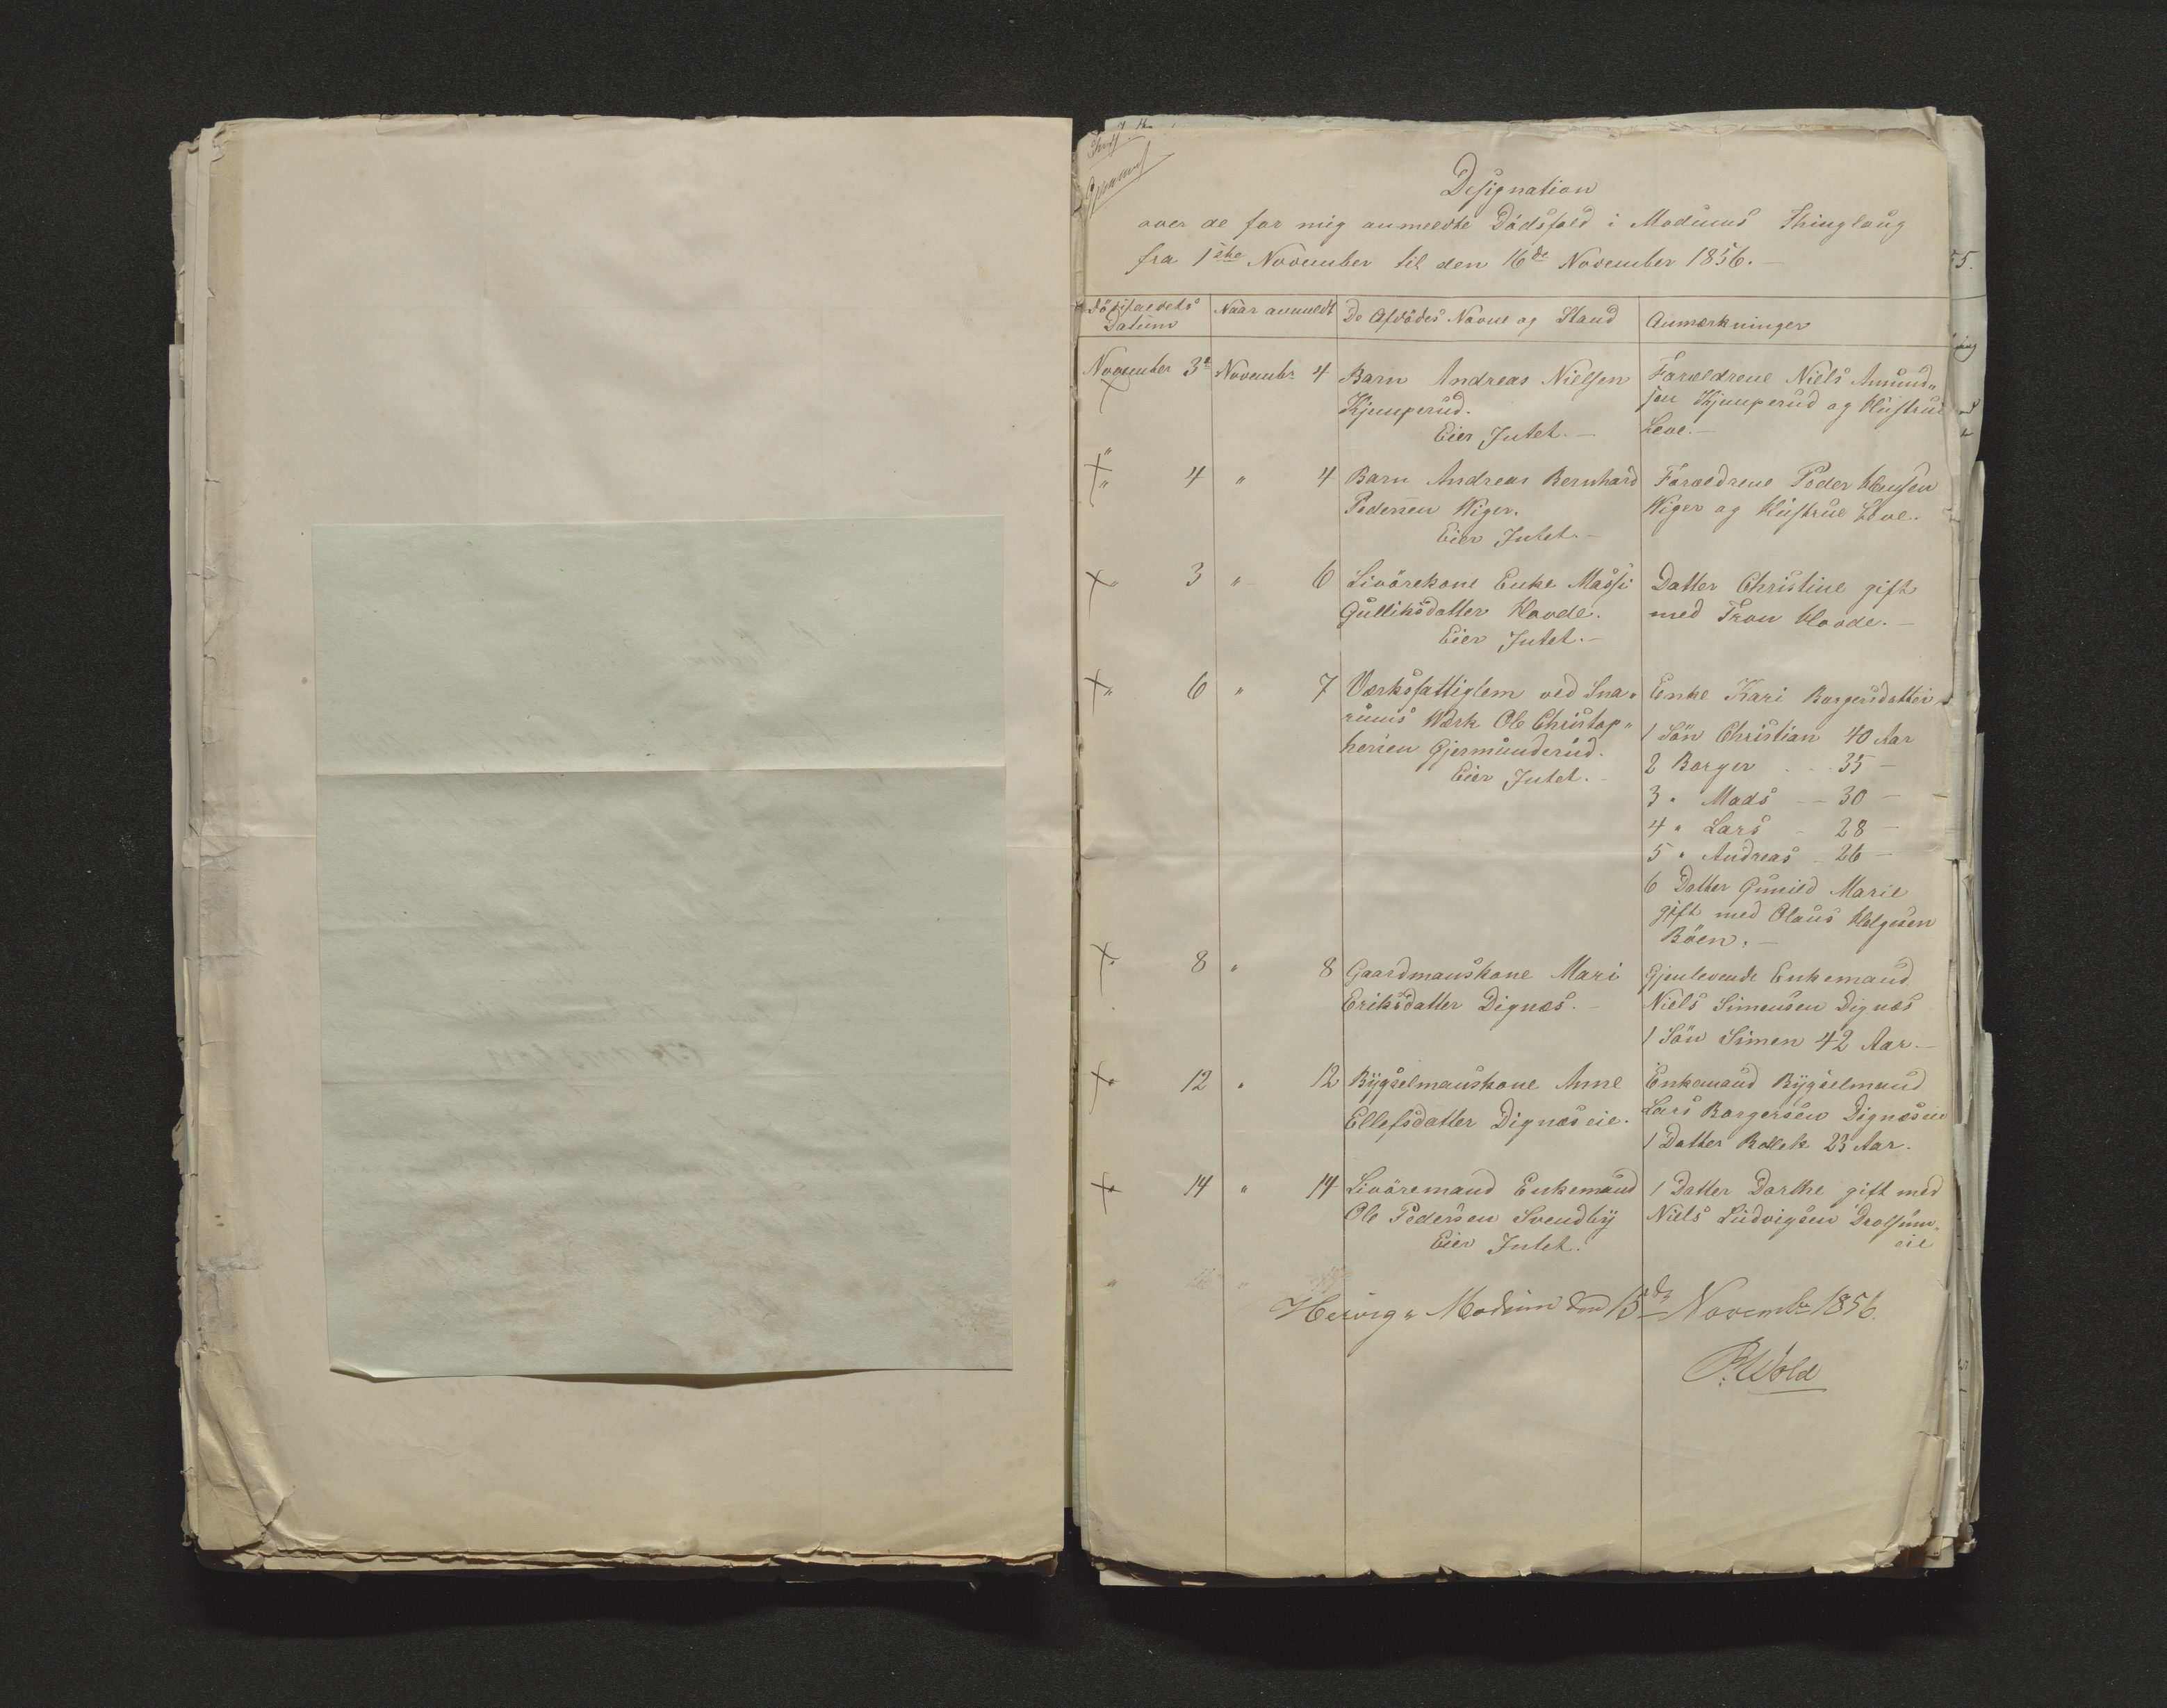 Designation
over de for mig anmeldte Dödsfald i Modums Thinglaug
fra 1ste November til den 16de November 1856.
Dödsfaldets Datum
Naar anmeldt
De Afdödes Navne og Stand
Anmærkninger
November 3de Novembr 4 Barn Andreas Nielsen Forældrene Niels Amund„
Kjemperud. sen Kjemperud og Hustrue
Eier Intet. — Leve. —
" 4 " 4 Barn Andreas Bernhard Forældrene Peder Hansen
Pedersen Wiger. Wiger og Hustrue Leve.
Eier Intet. —
" 3 " 6 Livörekone Enke Massi Datter Christine gift
Gulliksdatter Hovde. med Tron Hovde. —
Eier Intet. —
" 6 " 7 Værksfattiglem ved Sna„ Enke Kari Borgersdatter
rums Værk Ole Christop„ 1 Sön Christian 40 Aar
hersen Gjermunderud. 2 Borger 35 —
Eier Intet. 3 " Mads 30 —
4 " Lars 28 —
5 " Andreas 26 —
6 Datter Gunild Marie
gift med Olaus Helgesen
Böen. —
" 8 " 8 Gaardmanskone Mari Gjenlevende Enkemand
Eriksdatter Dignæs. — Niels Simensen Dignæs
1 Sön Simen 42 Aar. —
" 12 " 12 Bÿgselmanskone Anne Enkemand Bÿgselmand
Ellefsdatter Dignæseie. Lars Borgersen Dignæseie
1 Datter 23 Aar.
" 14 " 14 Livöremand Enkemand 1 Datter Dorthe gift med
Ole Pedersen Svendbÿ Niels Ludvigsen Drolsum„
Eier Intet. eie
Modum den 15de Novembr 1856.
P. Wold